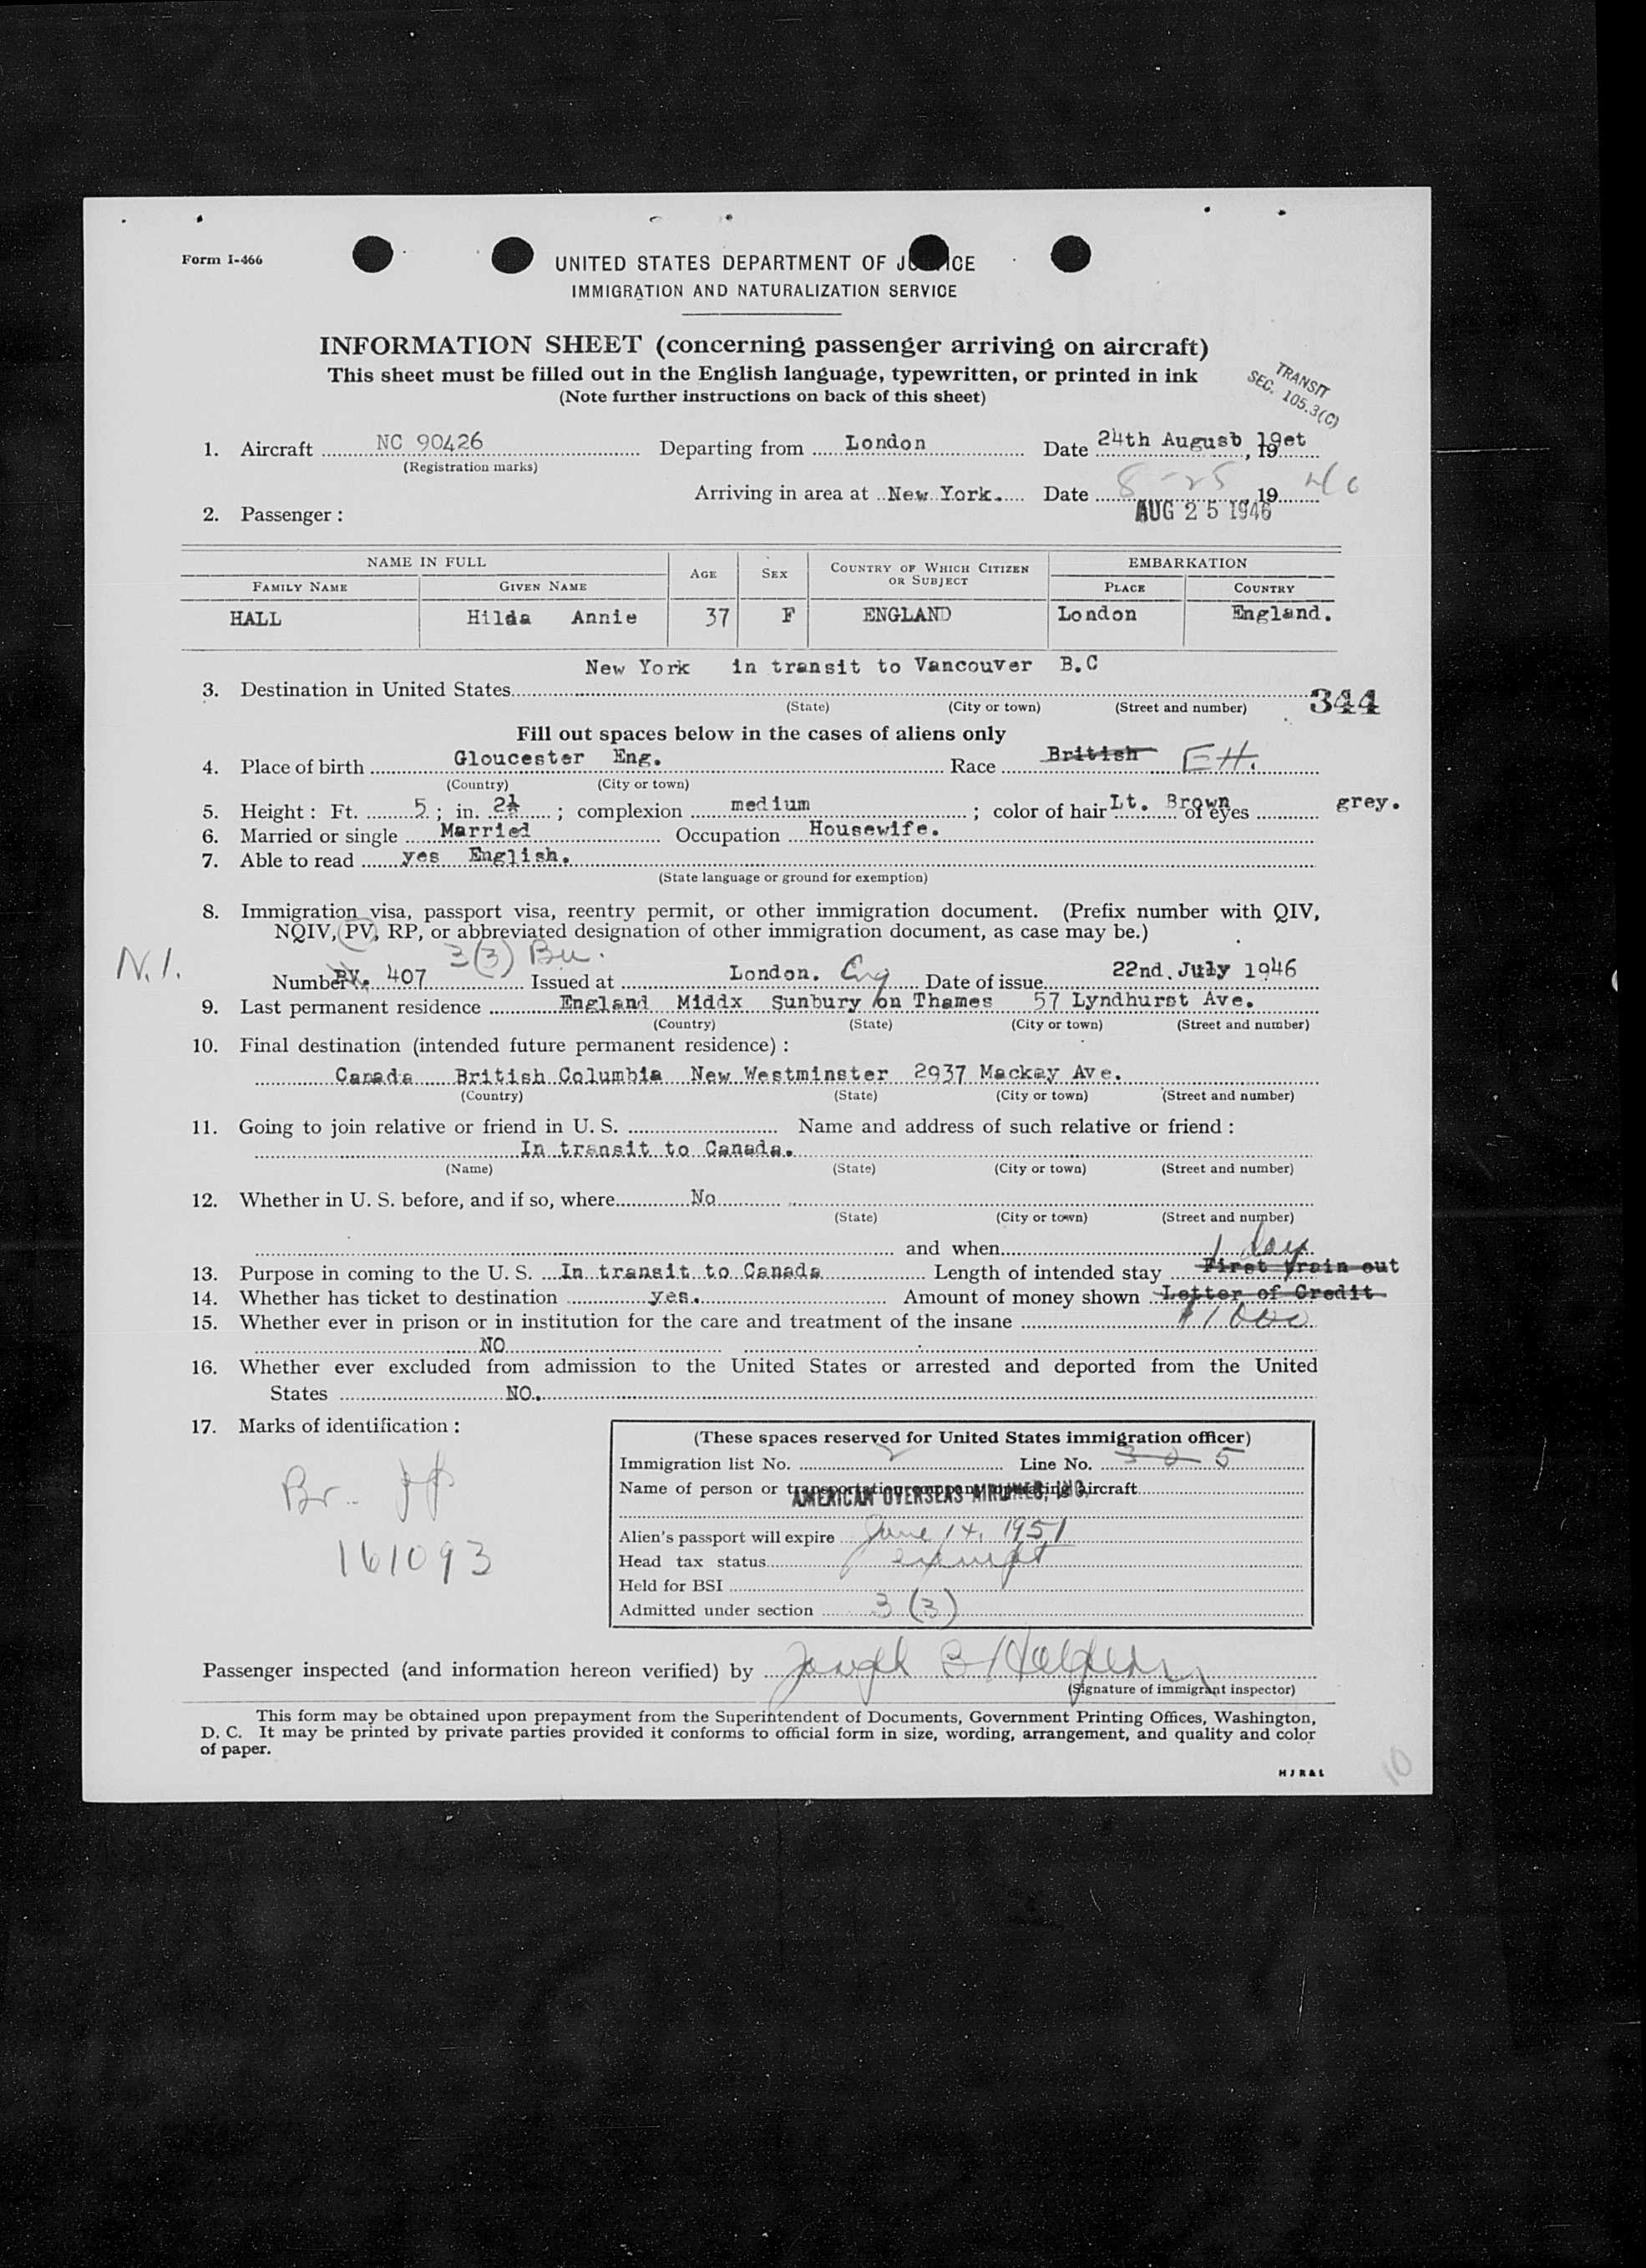 Form I-466
UNITED STATES DEPARTMENT OF JUSTICE
IMMIGRATION AND NATURALIZATION SERVICE
INFORMATION SHEET (concerning passenger arriving on aircraft)
This sheet must be filled out in the English language, typewritten, or printed in ink
(Note further instructions on back of this sheet)
TRANSIT
SEC. 105.3(C)
1. Aircraft NC 90426 Departing from London Date 24th August, 19
(Registration marks)
Arriving in area at New York. Date 8-25 1946
2. Passenger: AUG 25 1946
NAME IN FULL AGE SEX COUNTRY OF WHICH CITIZEN OR SUBJECT EMBARKATION
FAMILY NAME GIVEN NAME PLACE COUNTRY
HALL Hilda Annie 37 F ENGLAND London England.
New York in transit to Vancouver B.C
3. Destination in United States 344
(State) (City or town) (Street and number)
Fill out spaces below in the cases of aliens only
4. Place of birth Gloucester Eng. Race British
(Country) (City or town)
5. Height: Ft. 5; in. 2½; complexion medium; color of hair Lt. Brown of eyes grey.
6. Married or single Married Occupation Housewife.
7. Able to read yes English.
(State language or ground for exemption)
8. Immigration visa, passport visa, reentry permit, or other immigration document. (Prefix number with QIV,
NQIV, PV, RP, or abbreviated designation of other immigration document, as case may be.)
N.I. 3(3) Bu.
Number PV. 407 Issued at London. Eng Date of issue 22nd. July 1946
9. Last permanent residence England Middx Sunbury on Thames 57 Lyndhurst Ave.
(Country) (State) (City or town) (Street and number)
10. Final destination (intended future permanent residence):
Canada British Columbia New Westminster 2937 Mackay Ave.
(Country) (State) (City or town) (Street and number)
11. Going to join relative or friend in U. S. Name and address of such relative or friend:
In transit to Canada.
(Name) (State) (City or town) (Street and number)
12. Whether in U. S. before, and if so, where No
(State) (City or town) (Street and number)
and when
1 day
13. Purpose in coming to the U. S. In transit to Canada Length of intended stay First train out
14. Whether has ticket to destination yes. Amount of money shown Letter of Credit
15. Whether ever in prison or in institution for the care and treatment of the insane $1000
NO
16. Whether ever excluded from admission to the United States or arrested and deported from the United
States NO.
17. Marks of identification:
(These spaces reserved for United States immigration officer)
Immigration list No. 2 Line No. 5
Name of person or transportation company operating aircraft
AMERICAN OVERSEAS AIRLINES, INC.
Alien's passport will expire June 14, 1951
Head tax status exempt
Held for BSI
Admitted under section 3(3)
Br. PP
161093
Passenger inspected (and information hereon verified) by Joseph B Halpern
(Signature of immigrant inspector)
This form may be obtained upon prepayment from the Superintendent of Documents, Government Printing Offices, Washington,
D. C. It may be printed by private parties provided it conforms to official form in size, wording, arrangement, and quality and color
of paper.
HJR&L
10